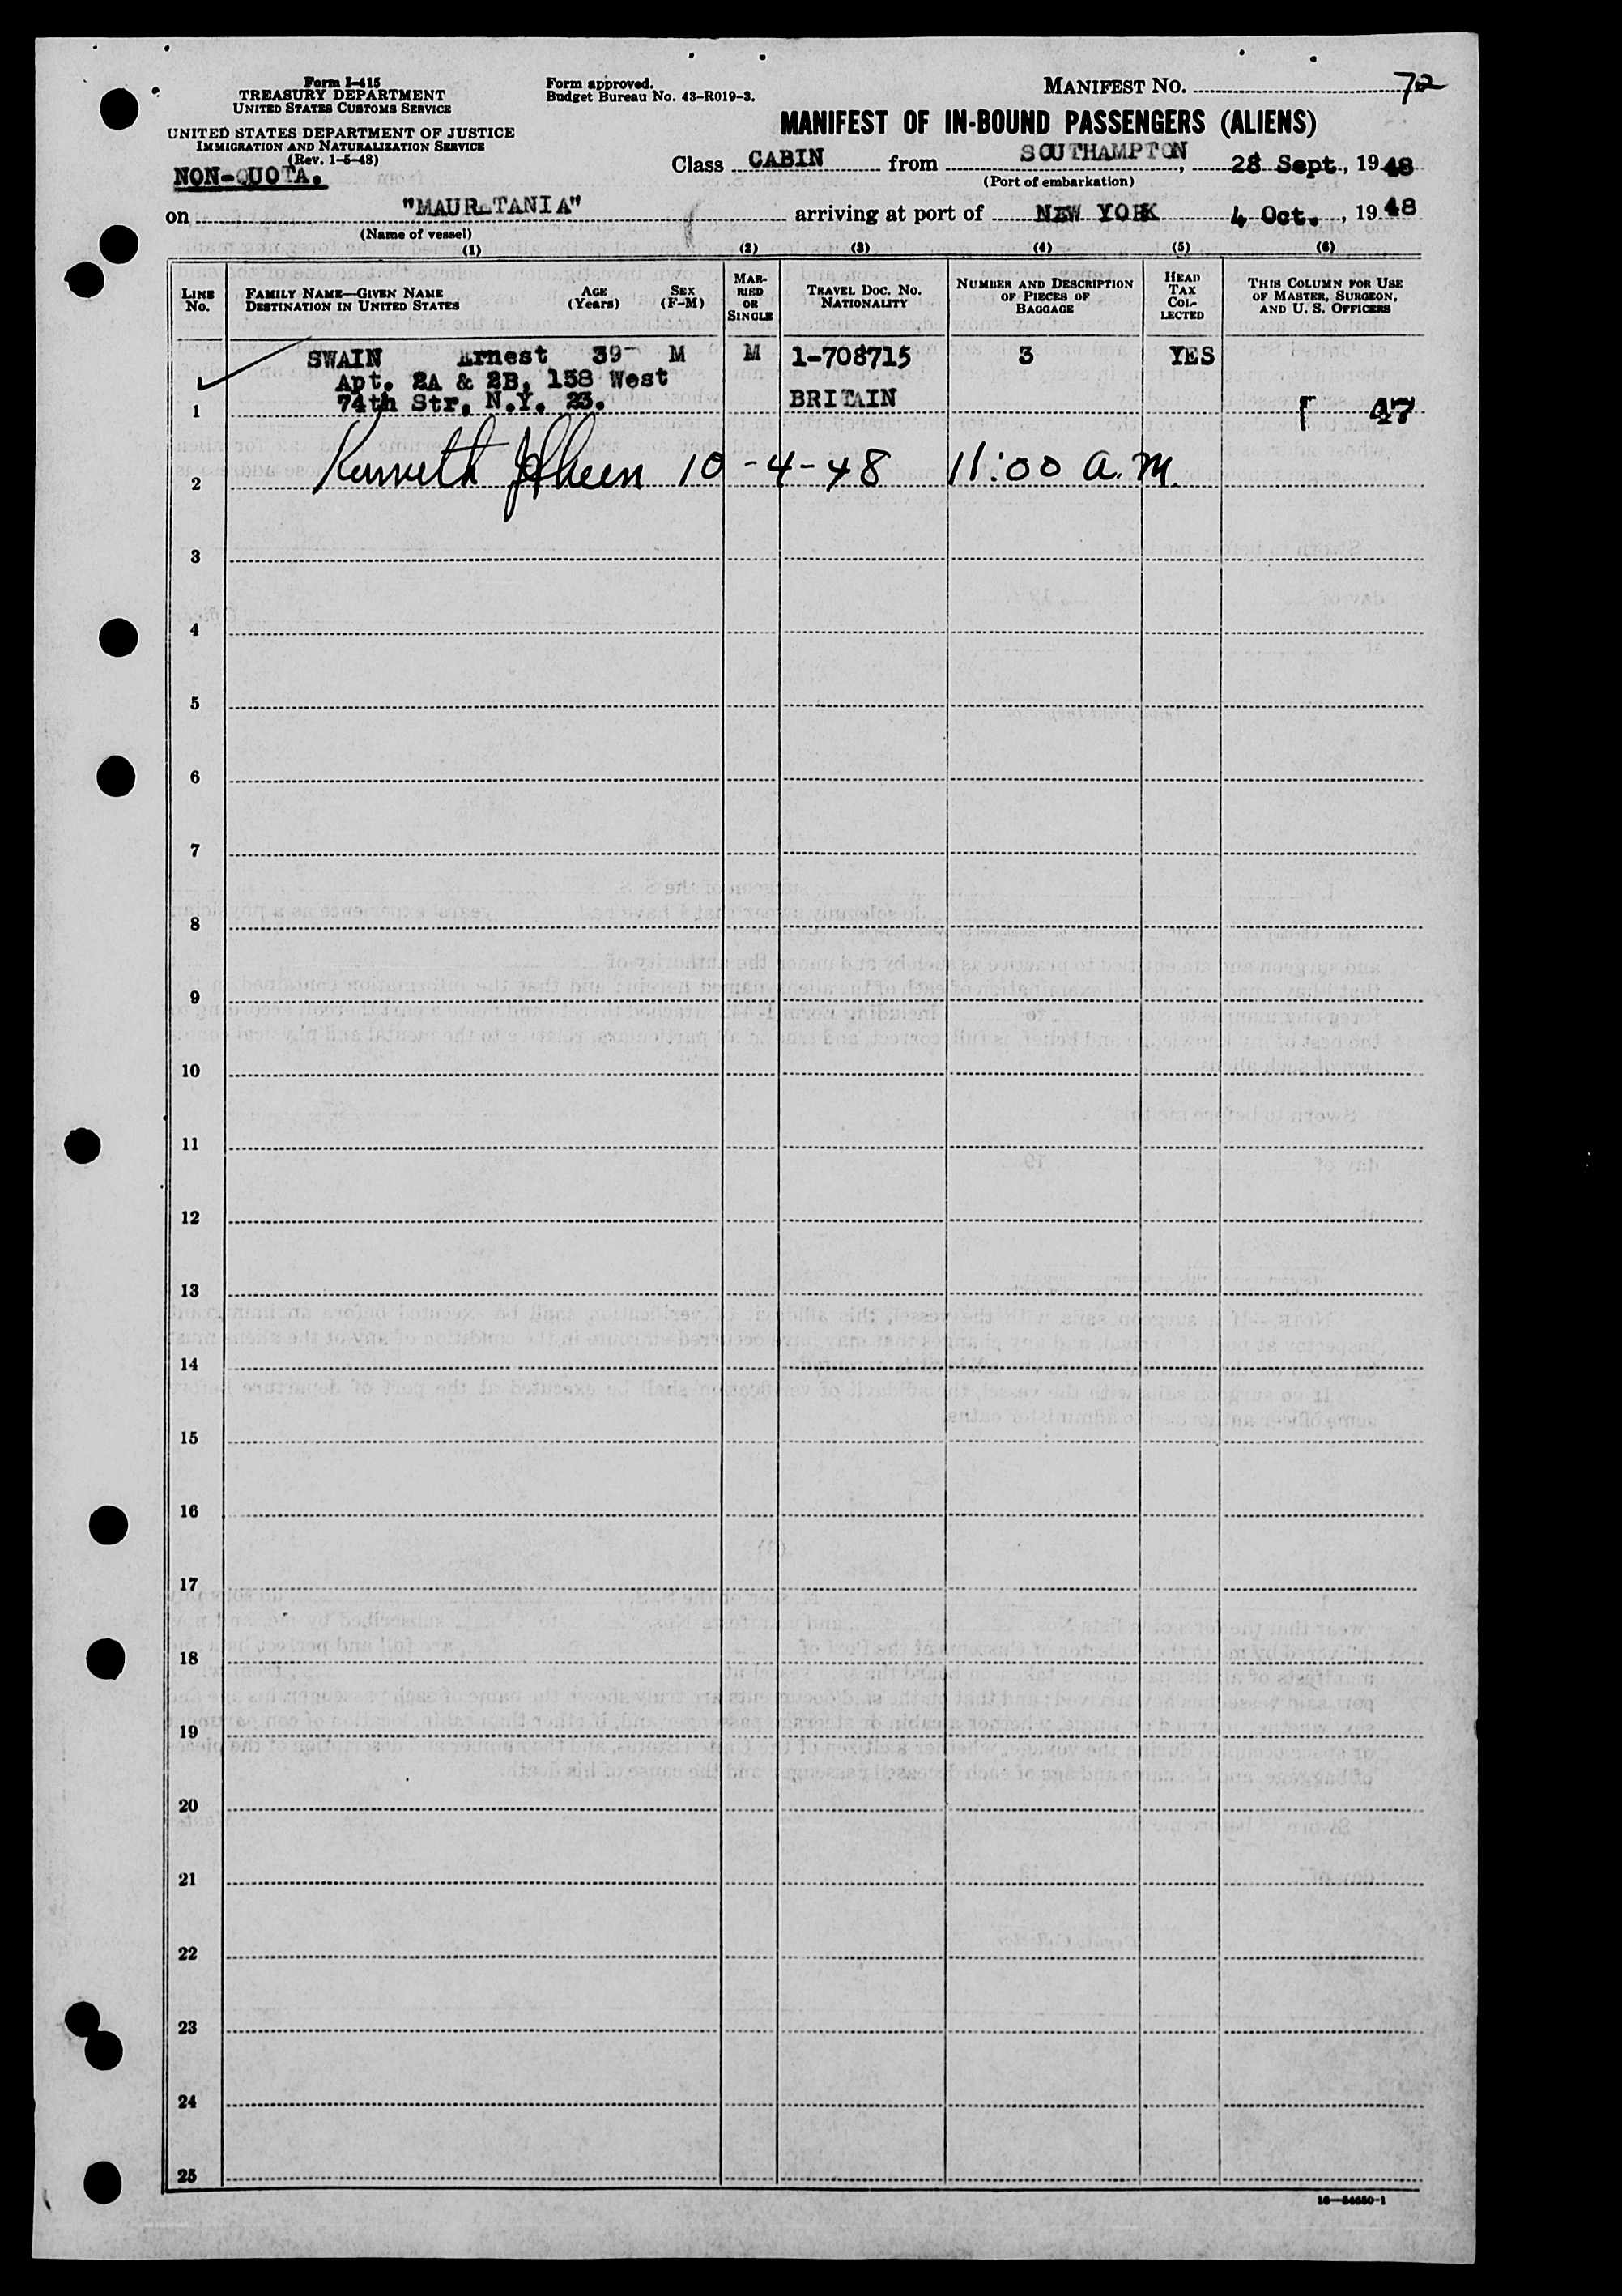 Form I-415
TREASURY DEPARTMENT
UNITED STATES CUSTOMS SERVICE
UNITED STATES DEPARTMENT OF JUSTICE
IMMIGRATION AND NATURALIZATION SERVICE
(Rev. 1-5-48)
NON-QUOTA.
Form approved.
Budget Bureau No. 43-R019-3.
MANIFEST NO. 72
MANIFEST OF IN-BOUND PASSENGERS (ALIENS)
Class CABIN from SOUTHAMPTON, 28 Sept, 1948
(Port of embarkation)
on "MAURETANIA" arriving at port of NEW YORK 4 Oct., 1948
(Name of vessel)
(1) (2) (3) (4) (5) (6)
LINE No. FAMILY NAME—GIVEN NAME DESTINATION IN UNITED STATES AGE (Years) SEX (F-M) MARRIED OR SINGLE TRAVEL DOC. NO. NATIONALITY NUMBER AND DESCRIPTION OF PIECES OF BAGGAGE HEAD TAX COLLECTED THIS COLUMN FOR USE OF MASTER, SURGEON, AND U. S. OFFICERS
SWAIN Ernest 39 M M 1-708715 3 YES
Apt. 2A & 2B, 158 West
1 74th Str, N.Y. 23. BRITAIN 47
2 Kenneth 10-4-48 11:00 a.m.
3
4
5
6
7
8
9
10
11
12
13
14
15
16
17
18
19
20
21
22
23
24
25